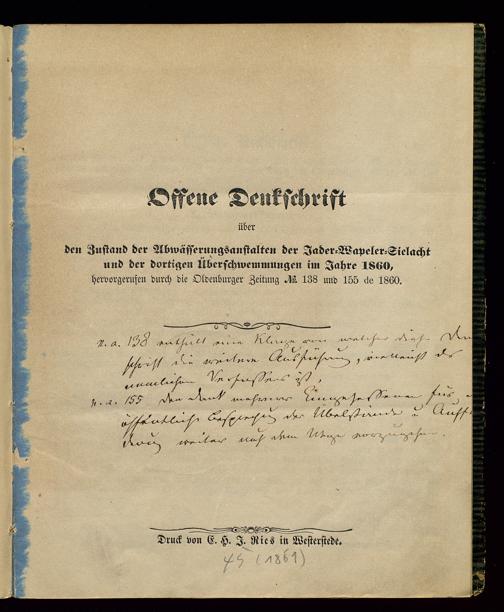 Offene Denkschrift
über
den Zustand der Abwässerungsanstalten der Jader-Wapeler-Sielacht
und der dortigen Überschwemmungen im Jahre 1860,
hervorgerufen durch die Oldenburger Zeitung № 138 und 155 de 1860.
n. a. 138 enthält eine Klage von welcher diese Denk
schrift die weitere Ausführung, vielleicht des
nemlichen Verfassers ist,
n. a. 155 den dank mehrerer Eingesessenen für
öffentliche besprechung der Übelstände u Auff
weiter auf dem Wege vorzugehen.
Druck von E. H. J. Ries in Westerstede.
45 (1861)